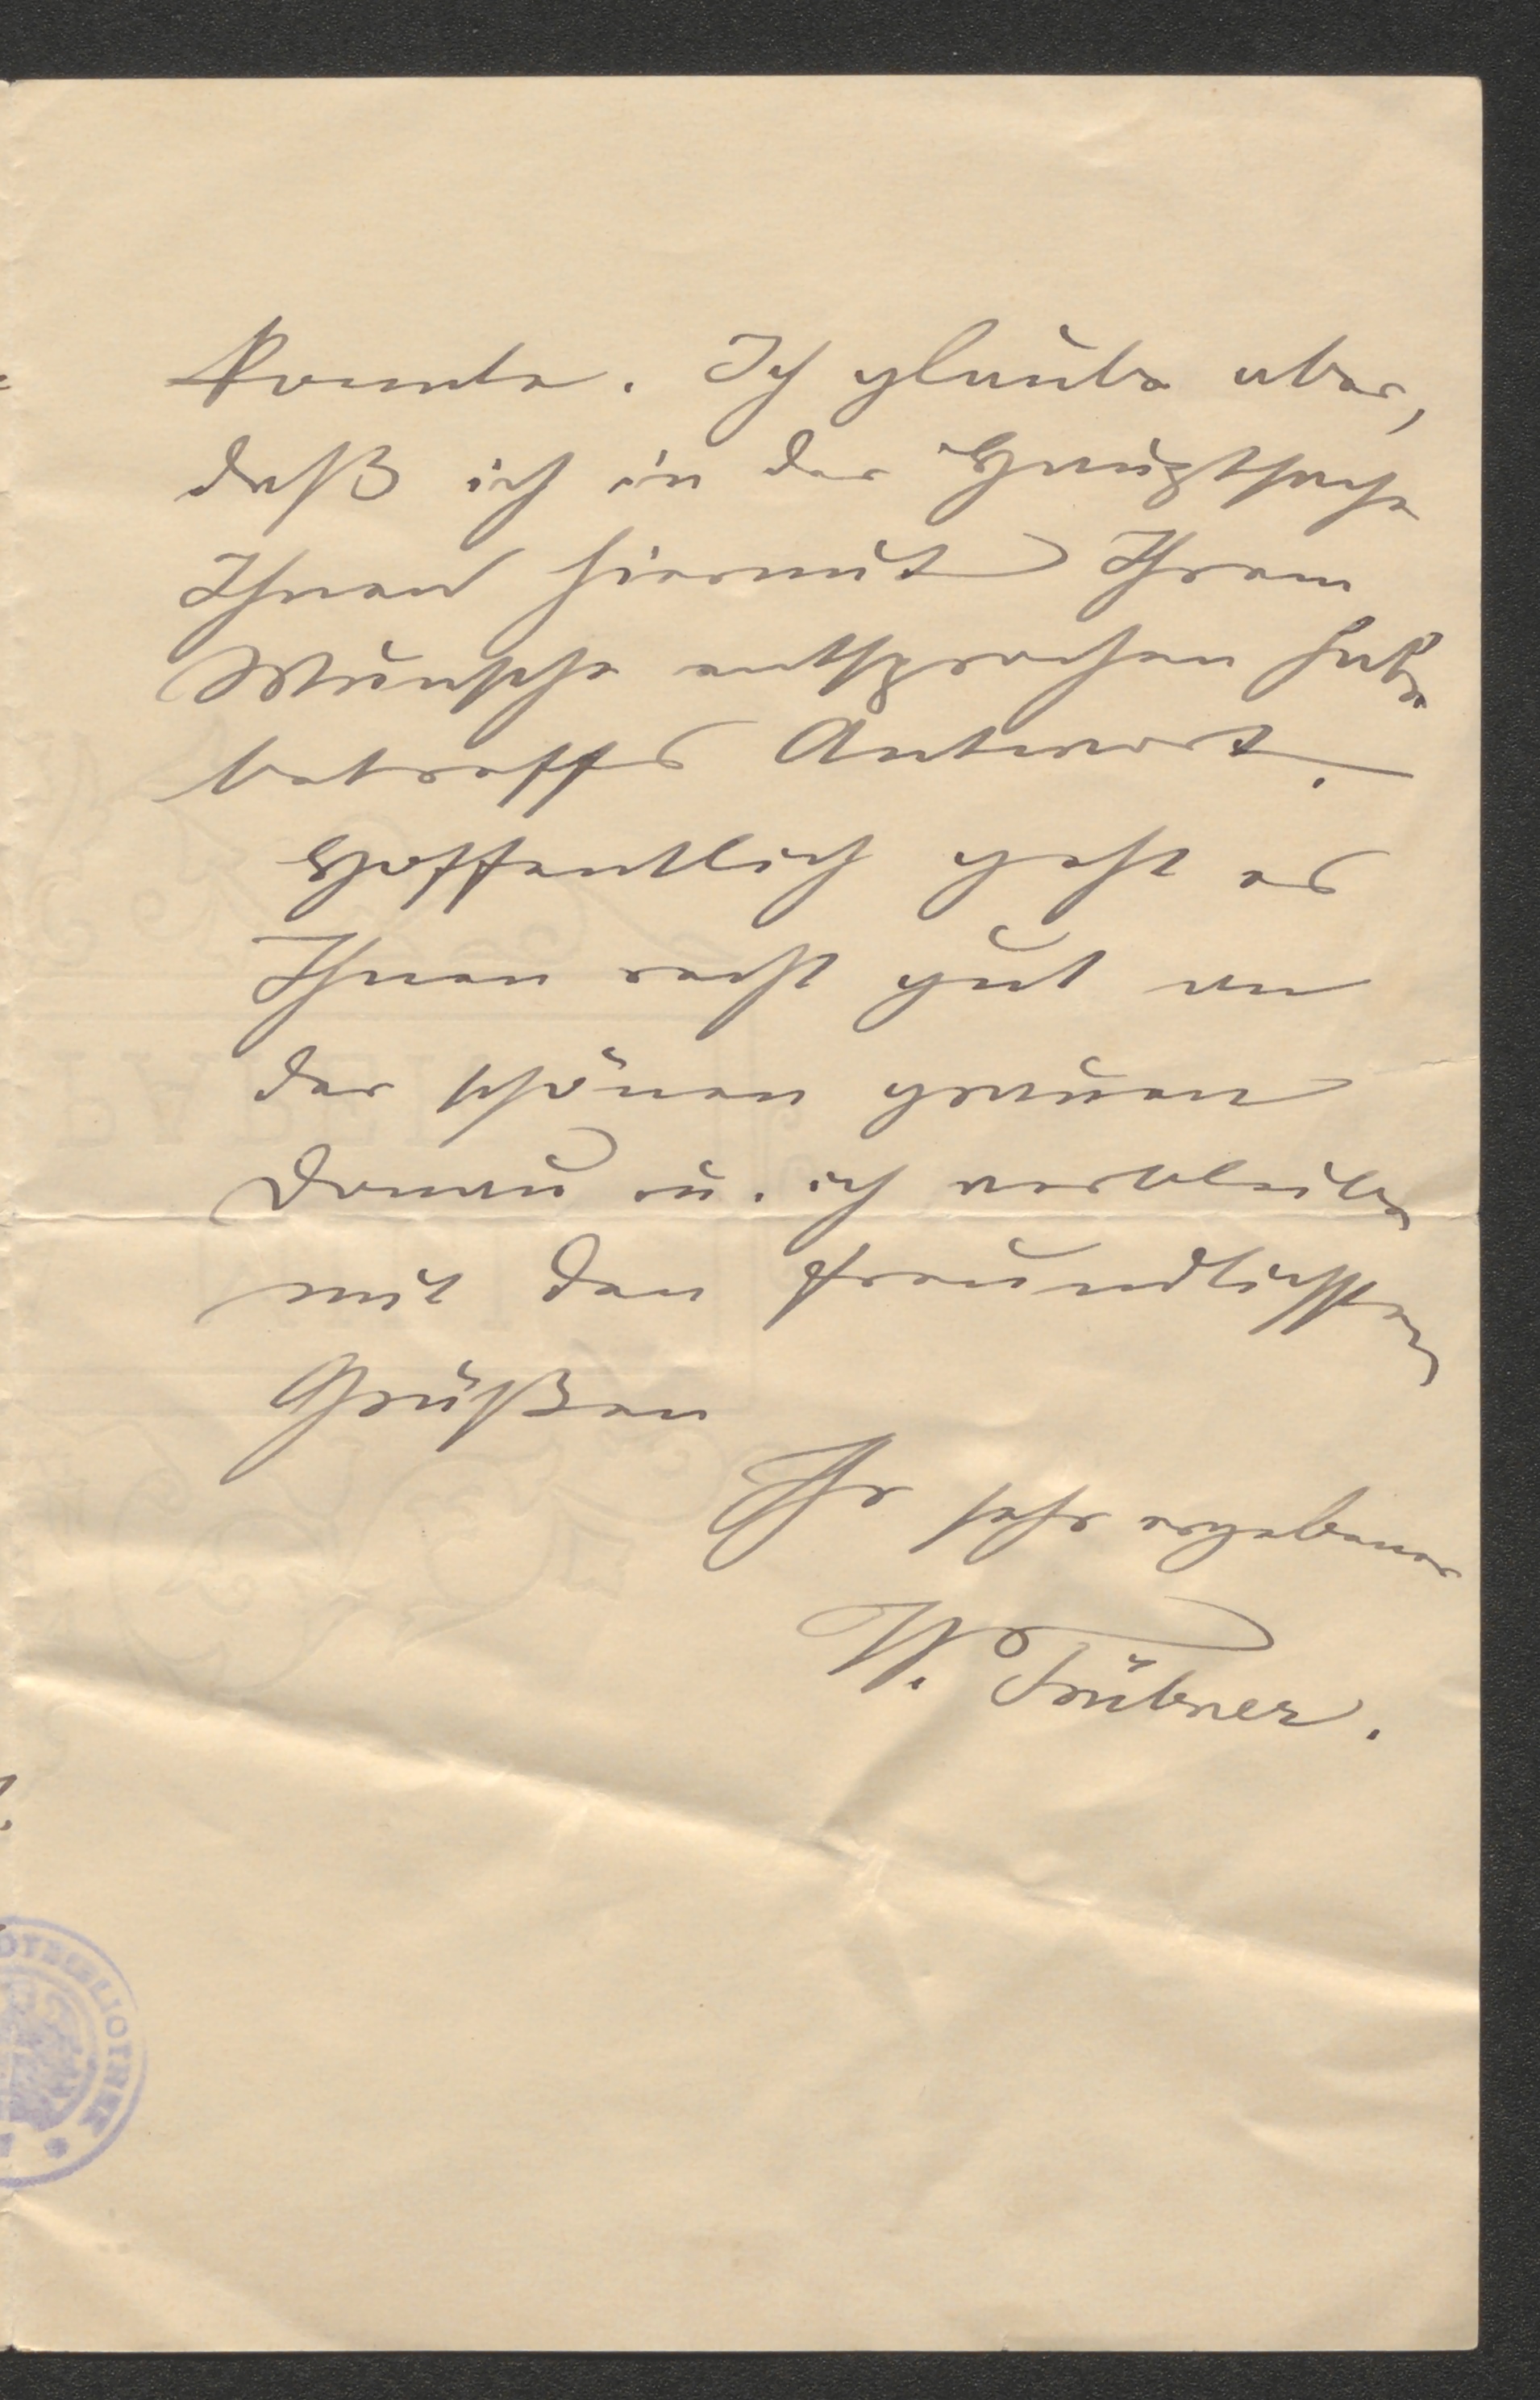 konnte. Ich glaube aber,
daß ich in der Hauptsache
Ihnen hiermit Ihrem
Wunsche entsprochen habe
betreffs Antwort.
Hoffentlich geht es
Ihnen recht gut an
der schönen grauen
Donau u. ich verbleibe
mit den freundlichsten
Grüßen
Ihr sehr ergebener
W. Trübner.